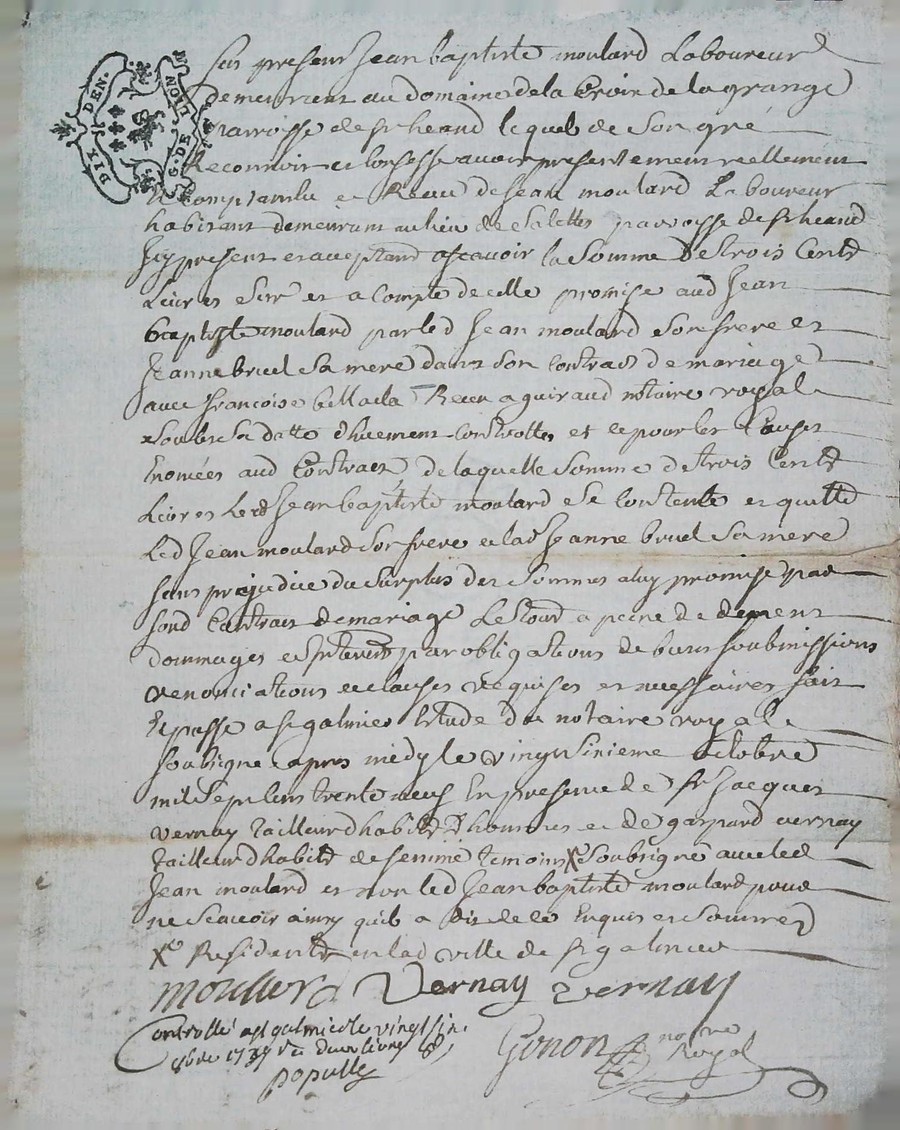 DIX DEN.
G. DE LION
fut present Jean baptiste moulard Laboureur
demeurant au domaine de la Croix de la grange
parroisse de st heand lequel de son gré
Reconnoit et Confesse avoir presentement reellement
Comptant Eu et Receu de Jean moulard Laboureur
habitant demeurant au lieu de Salettes parroisse de st heand
Icy present et acceptand ascavoir la Somme de trois Cents
Livres Sur et a Compte de celle promise aud Jean
baptiste moulard par led Jean moulard son frere et
Jeanne bruel Sa mere dans Son Contract de mariage
avec francoise Receu a guiraud notaire royal
Soubs Sa datte dhuement Controllé, et ce pour les Causes
Enoncées aud Contract de laquelle Somme de trois Cents
Livres led Jean baptiste moulard Se Contente et quitte
Led Jean moulard Son frere et lad Jeanne bruel Sa mere
Sans prejudice du Surplus des Sommes a luy promise par
Sond Contract de mariage Le tout a peine de
dommages et Interests par obligations de biens Soubmissions
renonciations et clauses requises et necessaires fait
Et passé a st galmier Etude du notaire royal
Soubsigné apres midy le vingt Sixieme octobre
mil Sept Cens trente neuf En presence de Sr Jacques
vernay Tailleur dhabits dhommes et de gaspard vernay
Tailleur dhabits de femme temoins X Soubsigné avec led
Jean moulard et non led Jean baptiste moulard pour
ne Scavoir ainsy quil a dit de ce Enquis et Sommés
X Residents en lad ville de st galmier
moullard Vernay vernay
Controllé a st galmier le vingt six
8bre 1739 douze livres
populle
Gonon no re
Royal